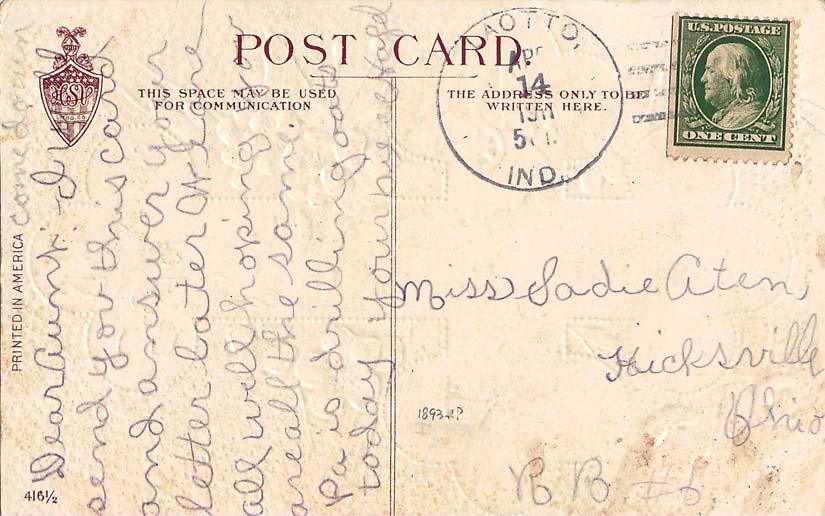 POST CARD.
THIS SPACE MAY BE USED
FOR COMMUNICATION
THE ADDRESS ONLY TO BE
WRITTEN HERE.
LAOTTO,
APR
14
1911
IND.
U.S. POSTAGE
ONE CENT
LITHO. CO.
PRINTED IN AMERICA
416½
come down
Dear Aunt: I will
send you this card
and answer your
letter later We are
all well hoping you
are all the same.
Pa is drilling oats
today Your niece
Miss Sadie Aten,
Hicksville
Ohio
R R. #6.
1893